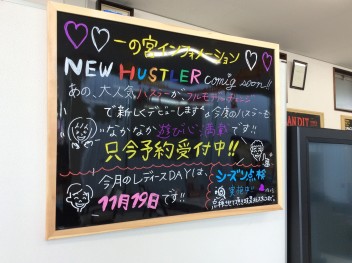 一の宮インフォメーション
NEW HUSTLER comig soon!!
あの、大人気ハスラーが、フルモデルチェンジ
で新しくデビューします。今度のハスラーも
なかなか遊び心満載です!!
只今予約受付中!!
今月のレディースDAYは、
11月19日です!!
シーズン点検
実施中!!
BANDIT